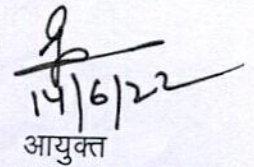 14/6/22
आयुक्त